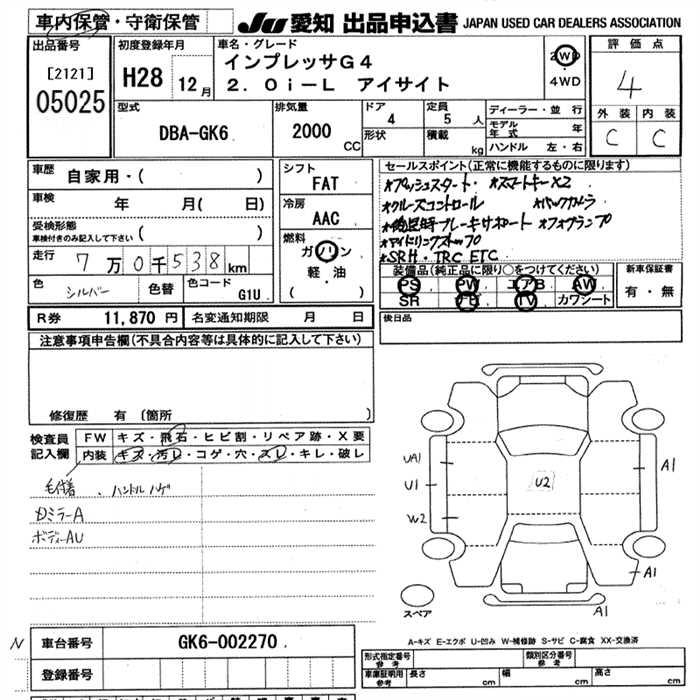 車内保管・守衛保管
JU 愛知 出品申込書 JAPAN USED CAR DEALERS ASSOCIATION
出品番号
[2121]
05025
初度登録年月
H28 12月
車名・グレード
インプレッサG4
2.0i-L アイサイト
2WD
4WD
評価点
4
外装 内装
C C
型式
DBA-GK6
排気量
2000 CC
ドア
4
形状
定員
5 人
積載 kg
ディーラー・並行
モデル年式 年
ハンドル 左・右
車歴 自家用・( )
車検 年 月( 日)
受検形態
車検付きのみ記入して下さい ( )
走行 7万0千538km
色 シルバー 色替 色コード G1U
シフト
FAT
冷房
AAC
燃料
ガソリン
軽・油
( )
セールスポイント(正常に機能するものに限ります)
*プッシュスタート・ *スマートキーX2
*クルーズコントロール *バックカメラ
*アイドリングストップ
*SRH・TRC ETC
装備品(純正品に限り○をつけてください)
PS PW エアB AW
SR ナビ TV カワシート
新車保証書
有・無
R券 11,870円 名変通知期限 月 日
後日品
注意事項申告欄(不具合内容等は具体的に記入して下さい)
修復歴 有(箇所 )
検査員記入欄
FW キズ・飛石・ヒビ割・リペア跡・X要
内装 キズ・汚レ・コゲ・穴・スレ・キレ・破レ
ハンドルハゲ
ミラーA
ボディーAU
UA1
U1
W2
U2
A1
A1
A1
スペア
A-キズ E-エクボ U-凹み W-補修跡 S-サビ C-腐食 XX-交換済
N 車台番号 GK6-002270
登録番号
形式指定番号 参考
類別区分番号 参考
車庫証明用 参考 長さ cm 幅 cm 高さ cm